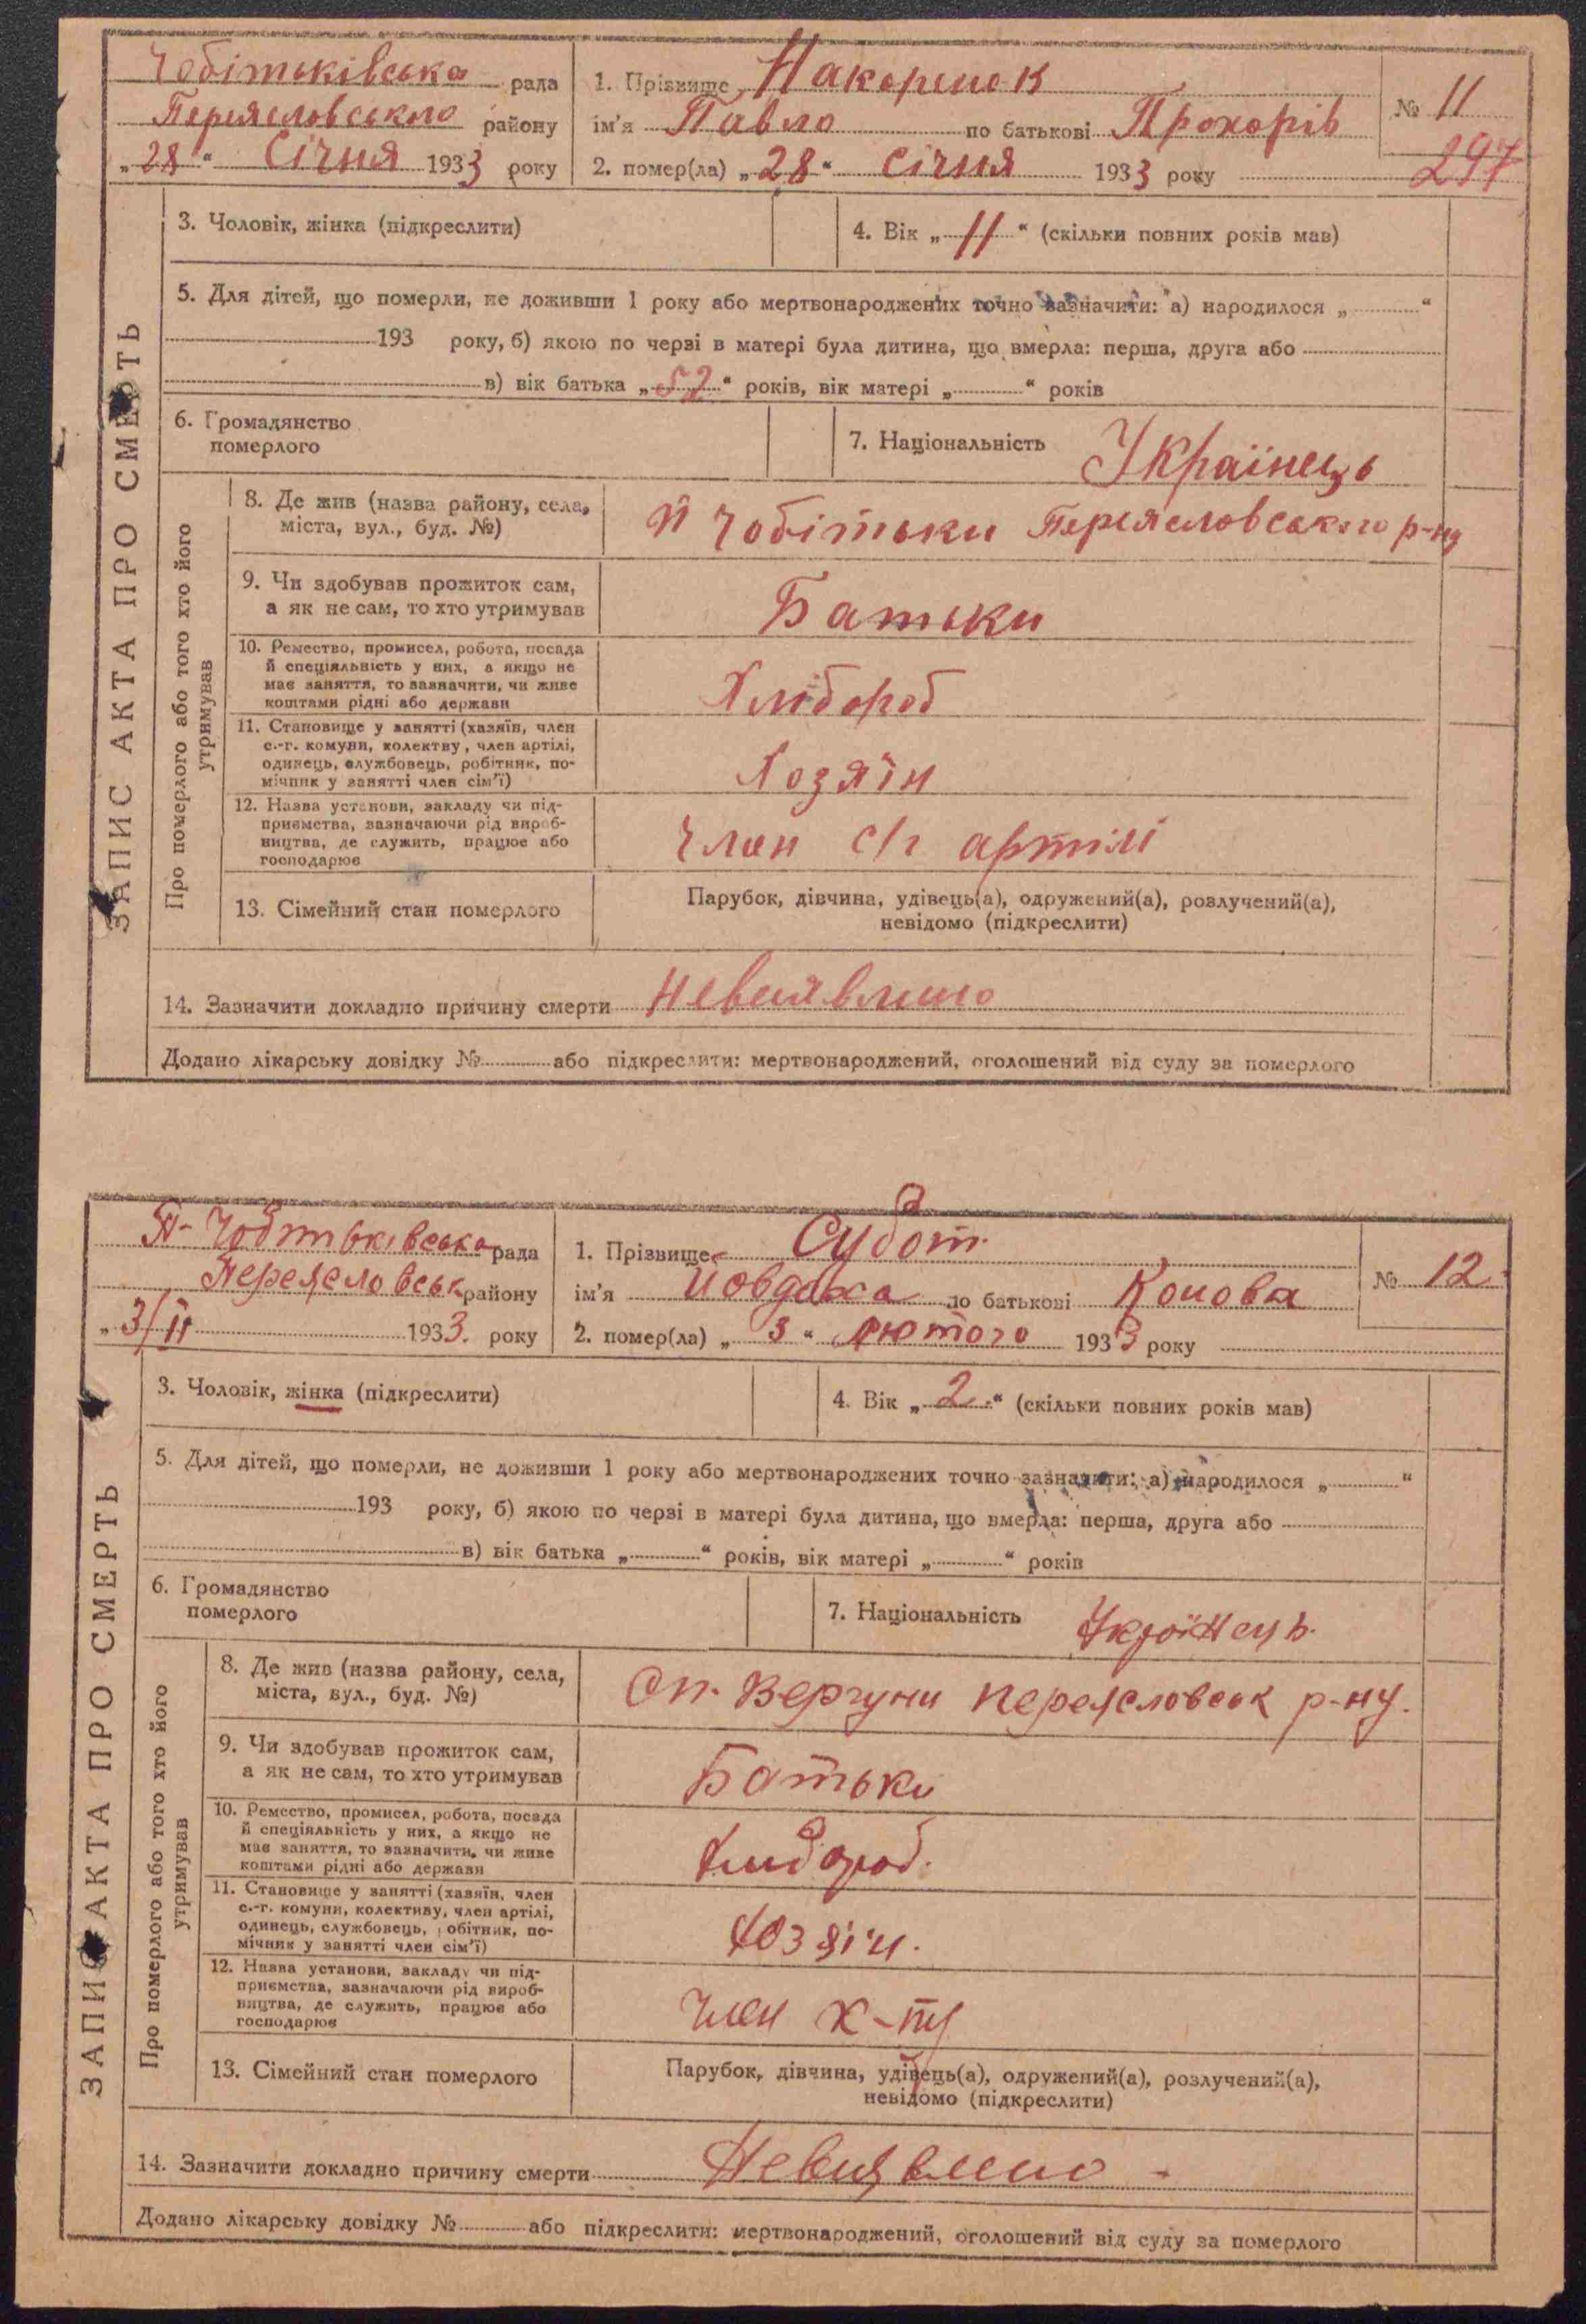 Чобітьківська рада
Переяславського району
„28“ Січня 1933 року
1. Прізвище Накоренок
ім'я Павло по батькові Прохорів
2. помер(ла) „28“ Січня 1933 року
№ 11
297
ЗАПИС АКТА ПРО СМЕРТЬ
3. Чоловік, жінка (підкреслити)
4. Вік „11“ (скільки повних років мав)
5. Для дітей, що померли, не доживши 1 року або мертвонароджених точно зазначити: а) народилося „ “
193 року, б) якою по черзі в матері була дитина, що вмерла: перша, друга або
в) вік батька „52“ років, вік матері „ “ років
6. Громадянство
померлого
7. Національність Українець
Про померлого або того хто його
утримував
8. Де жив (назва району, села,
міста, вул., буд. №)
П Чобітьки Переясловського р-ну
9. Чи здобував прожиток сам,
а як не сам, то хто утримував
Батьки
10. Ремество, промисел, робота, посада
й спеціяльність у них, а якщо не
має заняття, то зазначити, чи живе
коштами рідні або держави
Хлібороб
11. Становище у занятті (хазяїн, член
с.-г. комуни, колектву, член артілі,
одинець, службовець, робітник, по-
мічник у занятті член сім'ї)
Хозяїн
12. Назва установи, закладу чи під-
приємства, зазначаючи рід вироб-
ництва, де служить, працює або
господарює
Член с/г артілі
13. Сімейний стан померлого
Парубок, дівчина, удівець(а), одружений(а), розлучений(а),
невідомо (підкреслити)
14. Зазначити докладно причину смерти Невиявлено
Додано лікарську довідку № або підкреслити: мертвонароджений, оголошений від суду за померлого
П-Чобітьківська рада
Переясловськ району
„3/II 1933. року
1. Прізвище Субот
ім'я Йовдоха по батькові Конова
2. помер(ла) „3“ лютого 1933 року
№ 12.
ЗАПИС АКТА ПРО СМЕРТЬ
3. Чоловік, жінка (підкреслити)
4. Вік „2.“ (скільки повних років мав)
5. Для дітей, що померли, не доживши 1 року або мертвонароджених точно зазначити: а) народилося „ “
193 року, б) якою по черзі в матері була дитина, що вмерла: перша, друга або
в) вік батька „ “ років, вік матері „ “ років
6. Громадянство
померлого
7. Національність Українець.
Про померлого або того хто його
утримував
8. Де жив (назва району, села,
міста, вул., буд. №)
Вергуни Переясловськ р-ну.
9. Чи здобував прожиток сам,
а як не сам, то хто утримував
Батьки
10. Ремество, промисел, робота, посада
й спеціяльність у них, а якщо не
має заняття, то зазначити, чи живе
коштами рідні або держави
Хлібороб.
11. Становище у занятті (хазяїн, член
с.-г. комуни, колективу, член артілі,
одинець, службовець, робітник, по-
мічник у занятті член сім'ї)
Хозяїн.
12. Назва установи, закладу чи під-
приємства, зазначаючи рід вироб-
ництва, де служить, працює або
господарює
Член к-ту
13. Сімейний стан померлого
Парубок, дівчина, удівець(а), одружений(а), розлучений(а),
невідомо (підкреслити)
14. Зазначити докладно причину смерти Невиявлено -
Додано лікарську довідку № або підкреслити: мертвонароджений, оголошений від суду за померлого